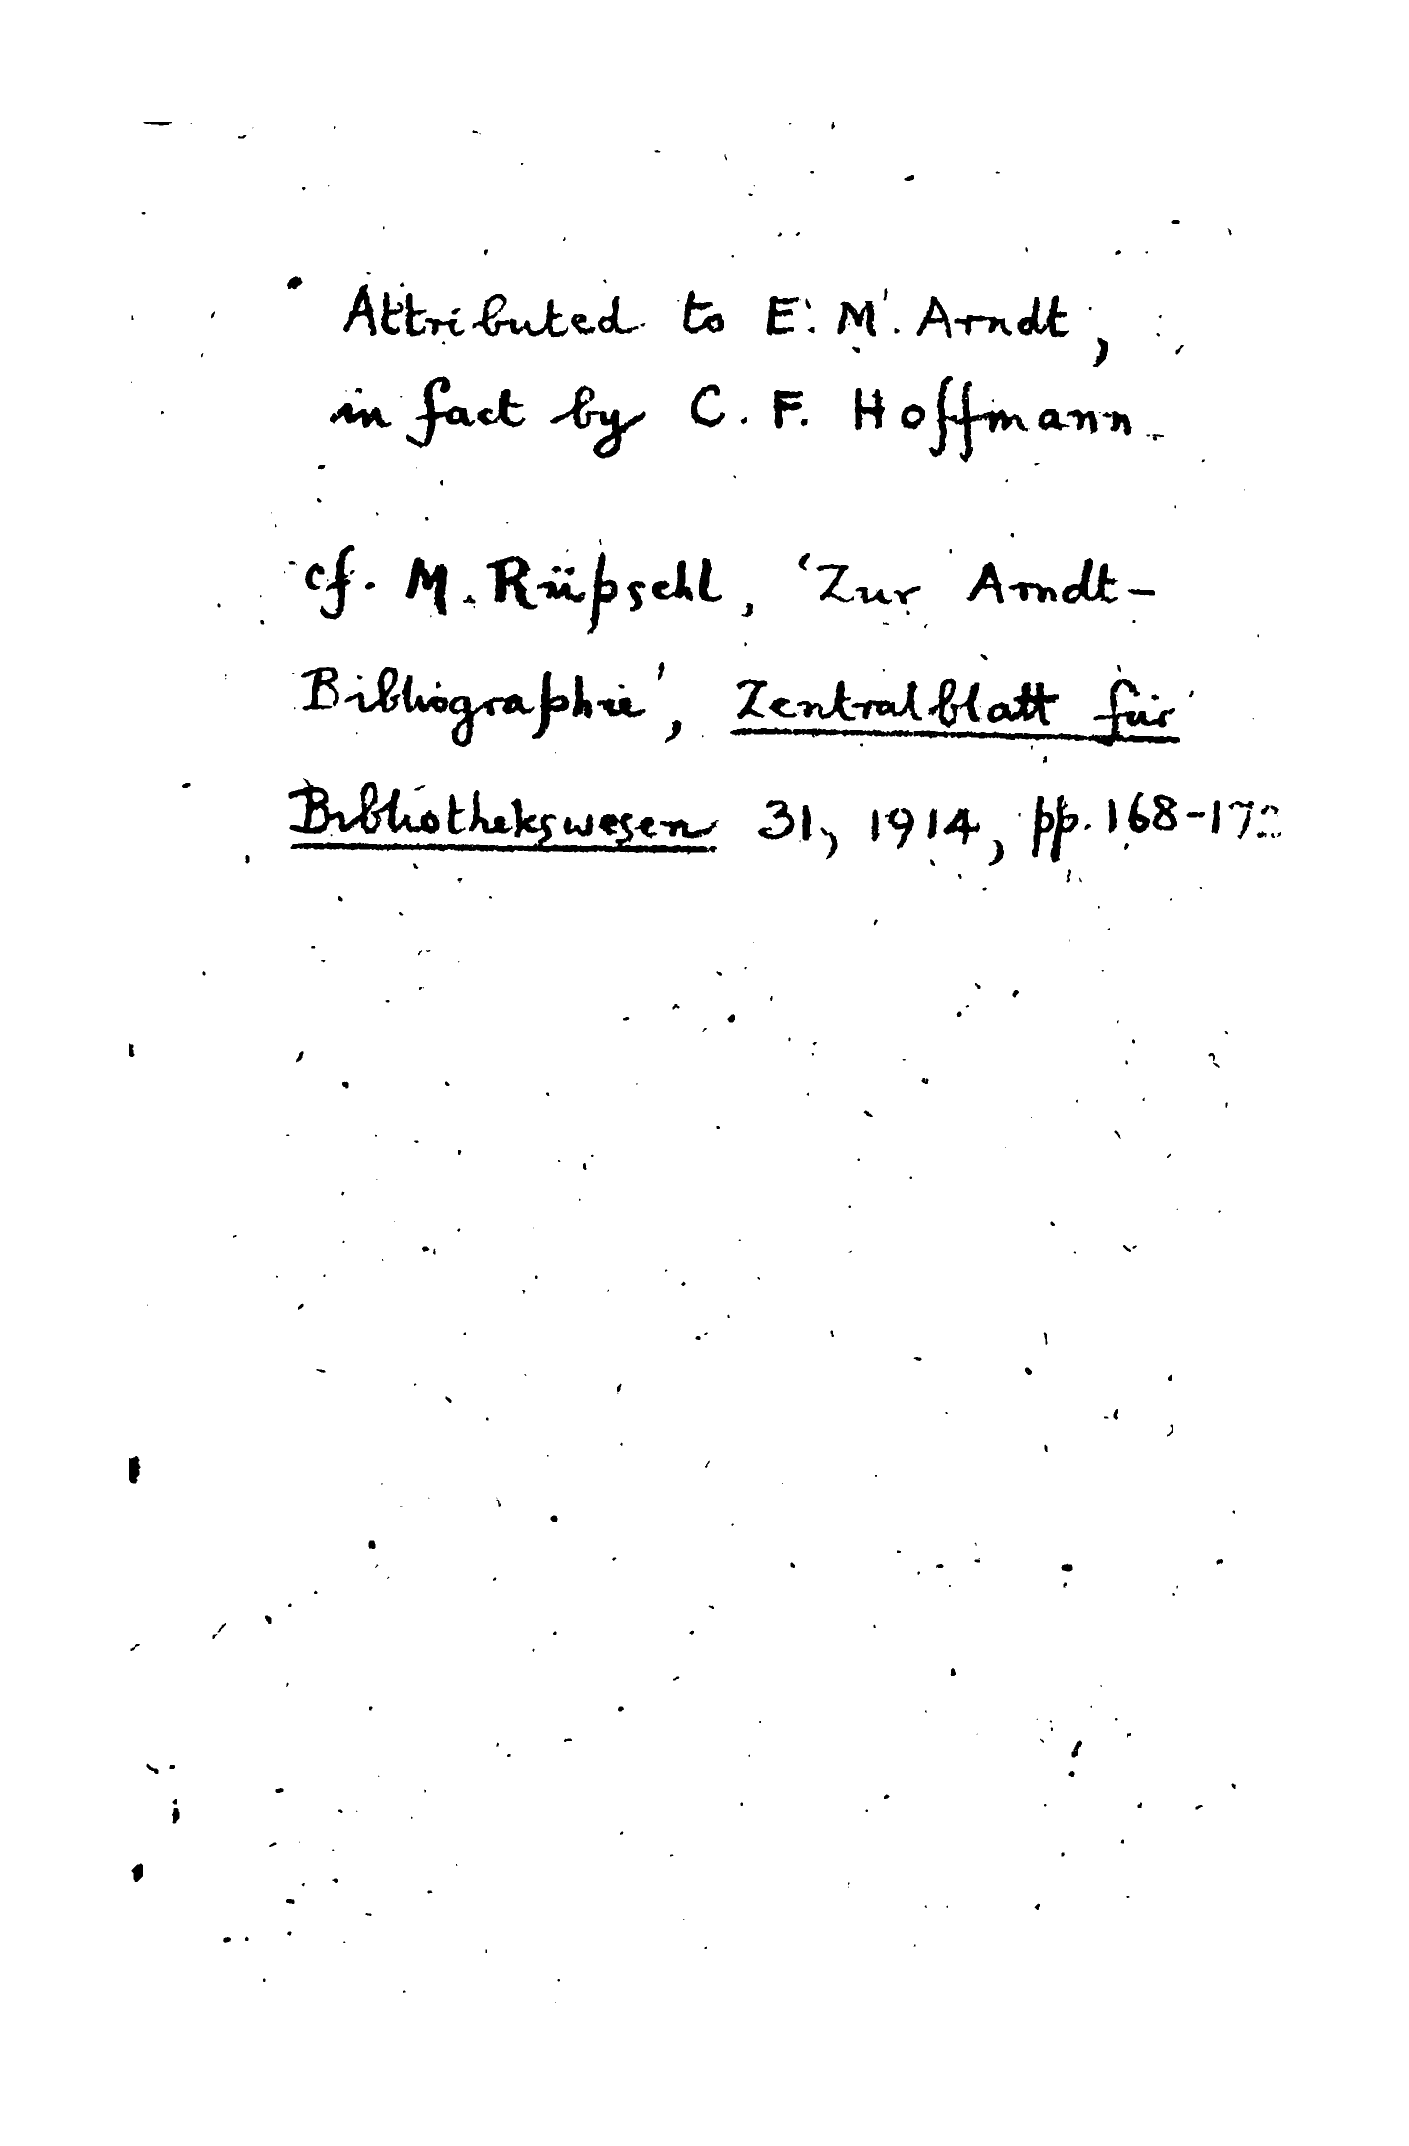 Attributed to E. M. Arndt,
in fact by C. F. Hoffmann.
cf. M. Rüpschl, 'Zur Arndt-
Bibliographie', Zentralblatt für
Bibliothekswesen 31, 1914, pp. 168-172